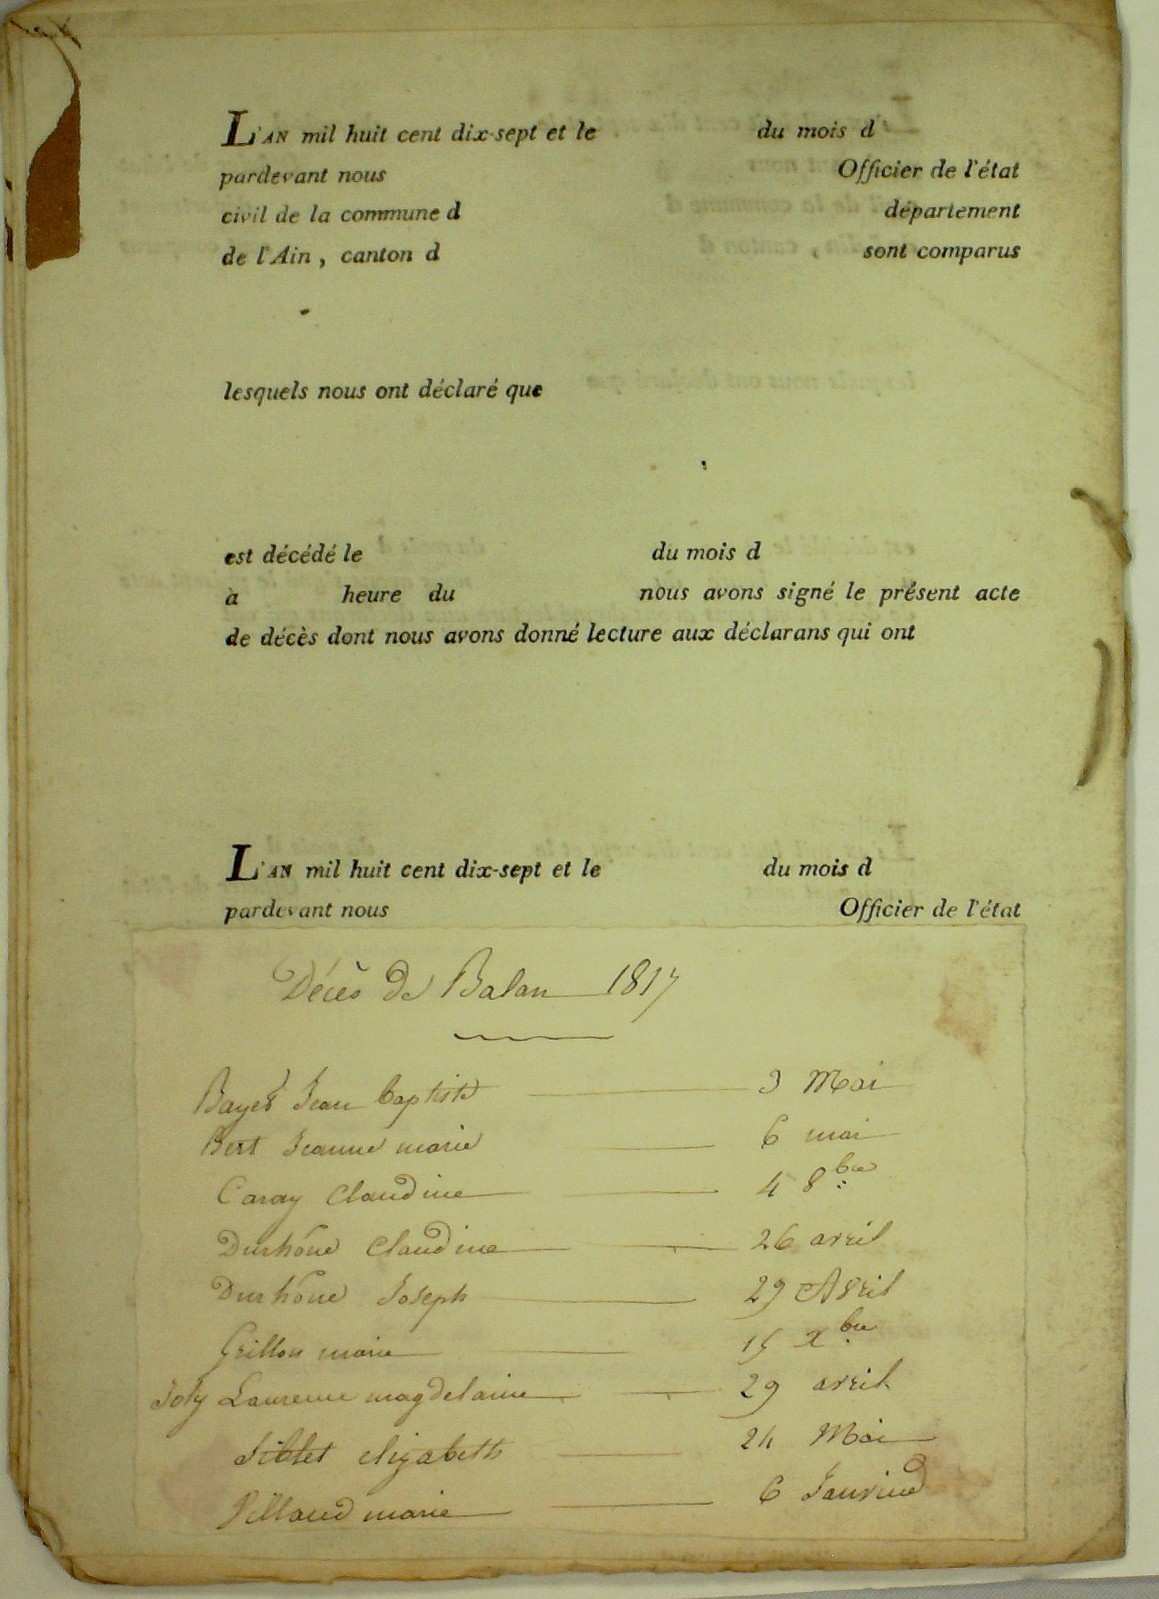 L'AN mil huit cent dix-sept et le du mois d
pardevant nous Officier de l'état
civil de la commune d département
de l'Ain , canton d sont comparus
lesquels nous ont déclaré que
est décédé le du mois d
à heure du nous avons signé le présent acte
de décès dont nous avons donné lecture aux déclarans qui ont
L'AN mil huit cent dix-sept et le du mois d
pardevant nous Officier de l'état
Décès de Balan 1817
Jean baptiste 3 Mai
Bert Jeanne marie 6 mai
Caray Claudine 4 8bre
Durhône Claudine 26 avril
Durhône Joseph 29 Avril
Grillon marie 15 xbre
Joly Laurence magdelaine 29 avril
elizabeth 24 Mai
marie 6 Janvier